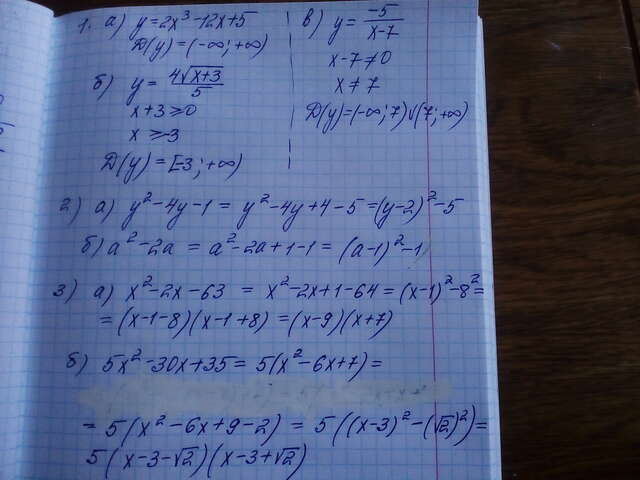 1. а) y = 2x³ - 12x + 5
D(y) = (-∞; +∞)
б) y = 4√(x+3) / 5
x + 3 ≥ 0
x ≥ -3
D(y) = [-3; +∞)
в) y = -5 / (x-7)
x - 7 ≠ 0
x ≠ 7
D(y) = (-∞; 7) ∪ (7; +∞)
2) а) y² - 4y - 1 = y² - 4y + 4 - 5 = (y-2)² - 5
б) a² - 2a = a² - 2a + 1 - 1 = (a-1)² - 1
3) а) x² - 2x - 63 = x² - 2x + 1 - 64 = (x-1)² - 8² =
= (x-1-8)(x-1+8) = (x-9)(x+7)
б) 5x² - 30x + 35 = 5(x² - 6x + 7) =
= 5(x² - 6x + 9 - 2) = 5((x-3)² - (√2)²) =
5(x-3-√2)(x-3+√2)